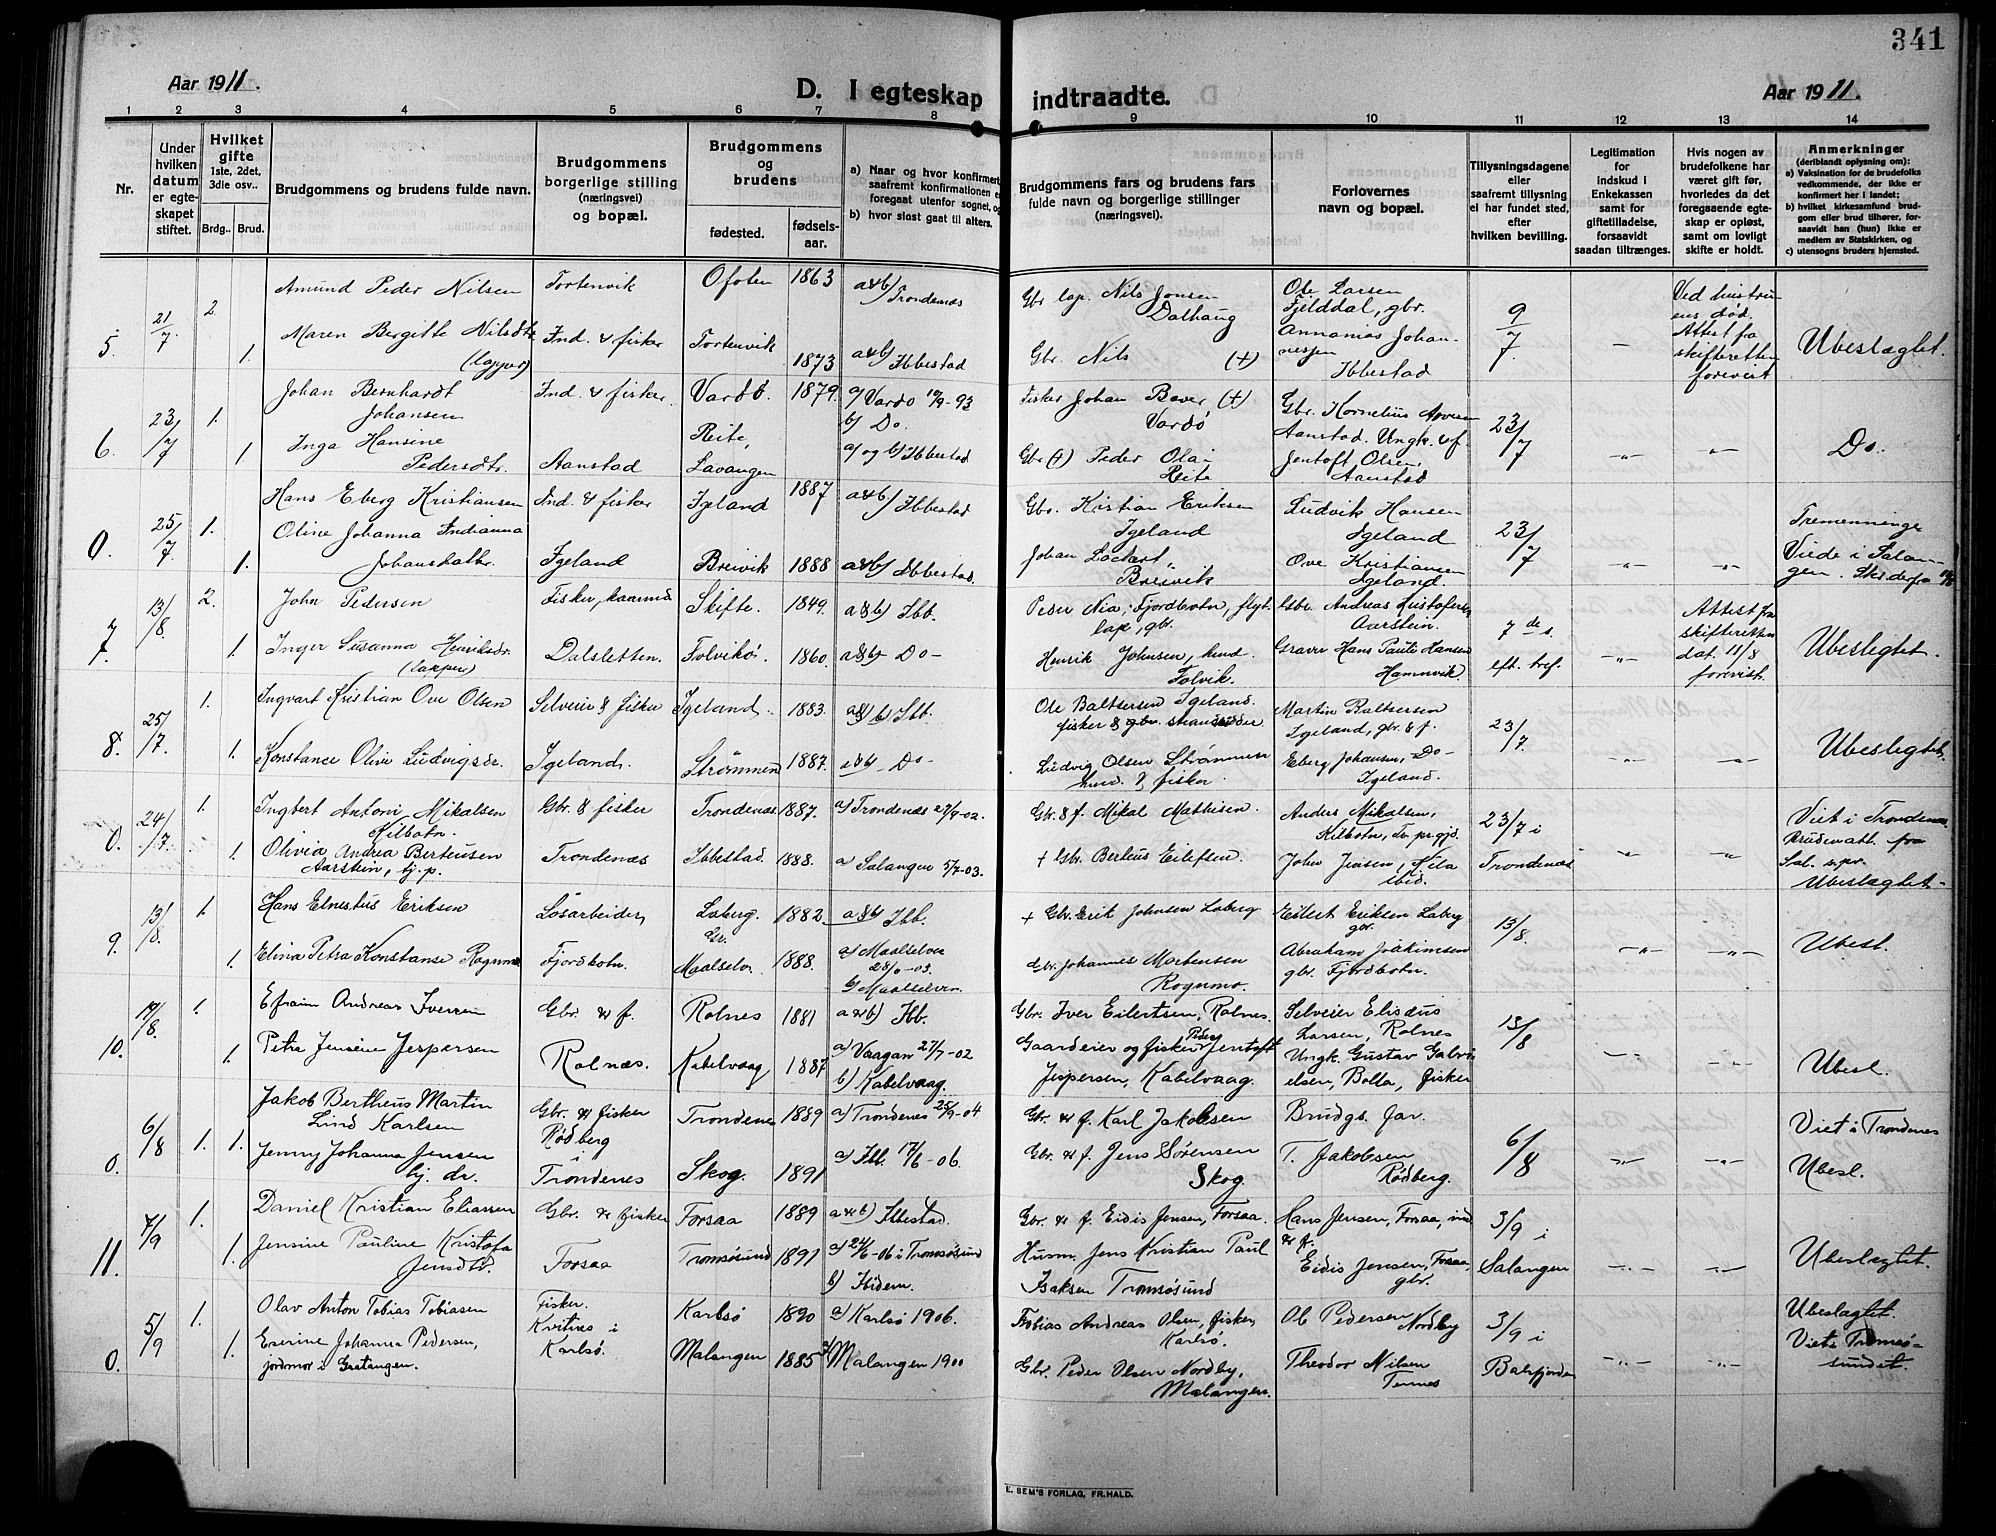 341
Aar 1911.
D. I egteskap indtraadte.
Aar 1911.
1 2 3 4 5 6 7 8 9 10 11 12 13 14
Nr.
Under hvilken datum er egteskapet stiftet.
Hvilket gifte 1ste, 2det, 3die osv..
Brdg.. Brud.
Brudgommens og brudens fulde navn.
Brudgommens borgerlige stilling (næringsvei) og bopæl.
Brudgommens og brudens
fødested. fødselsaar.
a) Naar og hvor konfirmert saafremt konfirmationen e foregaat utenfor sognet, og
b) hvor sidst gaat til alters.
Brudgommens fars og brudens fars fulde navn og borgerlige stillinger (næringsvei).
Forlovernes navn og bopæl.
Tillysningsdagene eller saafremt tillysning ei har fundet sted, efter hvilken bevilling.
Legitimation for indskud i Enkekassen samt for giftetilladelse, forsaavidt saadan tiltrænges.
Hvis nogen av brudefolkene har været gift før, hvorledes da det foregaaende egteskap er opløst, samt om lovligt skifte er holdt.
Anmerkninger (deriblandt oplysning om):
a) Vaksination for de brudefolks vedkommende, der ikke er konfirmert her i landet;
b) hvilket kirkesamfund brudgom eller brud tilhører, forsaavidt han (hun) ikke er medlem av Statskirken, og
c) utensogns bruders hjemsted.
5. 21/7 2 Amund Peder Nilsen Tortenvik Ofoten 1863 a&b/ Trondenæs Gbr lap. Nils Jonsen Dalhaug Ole Larsen Fjelddal, gbr. 9/7 Ved hustruens død. Attest fa skifteretten forevist Ubeslægtet.
1. Maren Bergitte Nilsdtr (lapper) Ind. & fisker Tortenvik 1873 a&b/ Ibbestad Gbr. Nils (+) Annanias Johannesen Ibbestad
6. 23/7 1. Johan Bernhardt Johansen Ind. & fisker. Vardö. 1879. a/ Vardö 10/9-93 b/ Do. Fisker Johan Baver (+) Vardö Gbr. Kornelius Aanstad. Ungk. & f. 23/7 -"- -"- Do.
1 Inga Hansine Pedersdtr. Aanstad Reite, Lavangen 1887 a/ og b/ Ibbestad Gbr (+) Peder Olai Reite Jentoft Olsen, Aanstad
0. 25/7 1. Hans Eberg Kristiansen Ind. & fisker Igeland 1887 a&b/ Ibbestad Gbr. Kistian Eriksen Igeland Ludvik Hansen Igeland 23/7 -"- -"- Tremenninge Viede i Salangen.
1. Oline Johanna Indianna Johansdatter Igeland Breivik 1888 a&b/ Ibbestad. Johan Lockert Breivik Ove Kristiansen Igeland.
7. 13/8 2. John Pedersen Fisker, Skifte. 1849. a&b) Ibb. Peder Nia, Fjordbotn, flyt. lap, gbr. Gbr. Andreas Aarstein. 7 de s. eft. tref. -"- Attest fra skifteretten dat. 11/8 forevist. Ubeslegtet.
1. Inger Susanna Henriksdr. (lapper) Dalsletten. Folvik. 1860. a&b Do- Henrik Johnsen, Folvik. Graver Hans Hansen Hamnvik.
8. 25/7. 1. Ingvart Kristian Ove Olsen Selveier & fisker Igeland. 1883. a&b) Ibb. Ole Baltsersen Igeland. fisker & strandsidder Martin Baltsersen Igeland, gbr. & f. 23/7. -"- -"- Ubeslegtet.
1. Konstance Olive Ludvigsdr. Igeland. Strømmen 1887. a&b Do- Ludvig Olsen Strømmen & fisker. Eberg Johansen, -Do- Igeland.
0. 24/7 1. Ingbert Antoni Mikalsen Kilbotn. Gbr. & fisker Trondenæs 1887. a) Trondenæs 27/9-02. Gbr. & f. Mikal Mathisen. Anders Mikalsen, Kilbotn, 23/7 i Trondenæs -"- -"- Viet i Trondenæs. fra Sal. s.pr. Ubeslægtet.
1. Olivia Andrea Berteusen Aarstein, tj. p. Trondenæs Ibbestad. 1888. a) Salangen 5/7-03. + Gbr. Berteus Eilefsen. John Jensen, Kila ibid.
9. 13/8. 1 Hans Elnestus Eriksen Løsarbeider, Loberg. Gr. 1882 a&b) Ibb. + Gbr. Erik Johnsen Loberg Eilert Eriksen Loberg gbr. 13/8. -"- -"- Ubesl.
1. Elina Petra Konstanse Rognmo Fjordbotn. Maalselv. 1888. a) Maalselven b) Maalselven. Gbr. Johannes Mortensen Rognmo. Abraham Joakimsen gbr. Fjordbotn.
10. 14/8. 1. Efraim Andreas Iversen Gbr. & f. Rolnes 1881 a&b) Ibb. Gbr. Iver Eilertsen, Rolnes. Selveier Elisæus Larsen, Rolnes 13/8 -"- -"- Ubesl.
1. Petra Jensine Jespersen Rolnæs. Kabelvaag 1887 a) Vaagan 27/7-02 b) Kabelvaag. Gaardeier og fisker Peder Jentoft Jespersen, Kabelvaag. Ungk. Gustav Gabrielsen, Bolla, fisker
0. 6/8 1. 1. Jakob Bertheus Martin Lind Karlsen Gbr. & fisker Rödberg i Trondenes 1889 a) Trondenes 25/9-04 Gbr. & f. Karl Jakobsen Brudgs. far. 6/8 -"- -"- Viet i Trondenes
Jenny Johanna Jensen tj. dr. Trondenes Skog. 1891 a) Ibb. 17/6-06. Gbr. & f. Jens Sørensen Skog. T. Jakobsen Rödberg. Ubesl.
11. 7/9 1. Daniel Kristian Eliassen Gbr. & fisker Forsaa 1889 a&b) Ibbestad. Gbr. & f. Eidis Jensen, Forsaa. Hans Jensen, Forsaa, ind & f. 3/9 i Salangen -"- -"- Ubeslægtet.
1. Jensine Pauline Kristofa Jensdtr. Forsaa Tromsøsund 1891 a) 24/6-06 i Tromsøsund b) Ibidem. Husm. Jens Kristian Paul Isaksen Tromsøsund Eidis Jensen, Forsaa, gbr.
0. 5/9 1. Olav Anton Tobias Tobiasen Fisker. Kvitnes i Karlsö. Karlsö 1890 a) Karlsö 1906. Tobias Andreas Olsen, fisker, Karlsö. Ole Pedersen Nordby 3/9 i Balsfjorden -"- -"- Ubeslagtet. Viets Tromsøsundet.
1. Eserine Johanna Pedersen, jordmor i Gratangen. Malangen 1885 Malangen 1900 Gbr. Peder Olsen Nordby, Malangen. Theodor Nilsen Tennes
E. SEM'S FORLAG, FR.HALD.